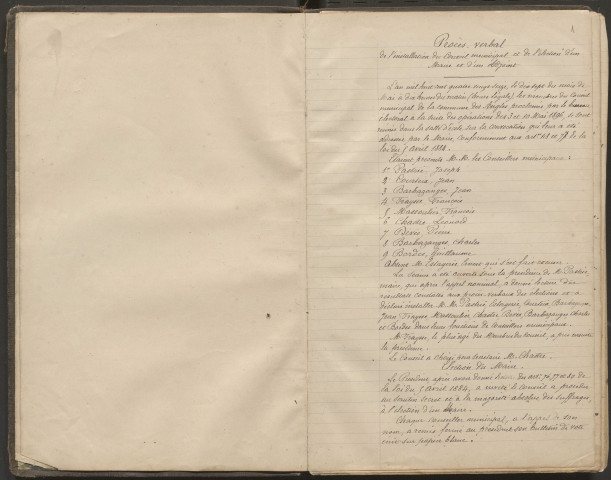 1
Procès-verbal
de l'installation du Conseil municipal et de l'élection d'un
Maire et d'un Adjoint
L'an mil huit cent quatre vingt seize, le dix sept du mois de
Mai à dix heures du matin (heure légale), les membres du Conseil
municipal de la commune des Angles proclamés par le bureau
électoral à la suite des opérations des 3 et 10 Mai 1896, se sont
réunis dans la salle d'école sur la convocation qui leur a été
adressée par le Maire, conformément aux art. 48 et 77 de la
loi du 5 Avril 1884.
Étaient présents M.M. les Conseillers municipaux :
1º Pastrie, Joseph
2 Jean
3 Barbazanges, Jean
4 Trayssé, François
5 Massoubre, François
6 Chastre, Léonard
7 Pierre
8 Barbazanges, Charles
9 Bordes, Guillaume
Absent M. qui s'est fait excuser.
La séance a été ouverte sous la présidence de M. Pastrie,
maire, qui après l'appel nominal, a donné lecture des
résultats constatés aux procès-verbaux des élections et a
déclaré installer M.M. Pastrie, Barbazanges
Jean, Massoubre, Chastre, Barbazanges Charles
et Bordes dans leurs fonctions de Conseillers municipaux.
M. Trayssé, le plus âgé des Membres du Conseil, a pris ensuite
la présidence.
Le Conseil a choisi pour secrétaire M. Chastre.
Élection du Maire.
Le Président, après avoir donné lecture des art. 76, 77 et 80 de
la loi du 5 Avril 1884, a invité le Conseil à procéder
au scrutin secret et à la majorité absolue des suffrages,
à l'élection d'un Maire.
Chaque conseiller municipal, à l'appel de son
nom, a remis fermé au président son bulletin de vote
écrit sur papier blanc.